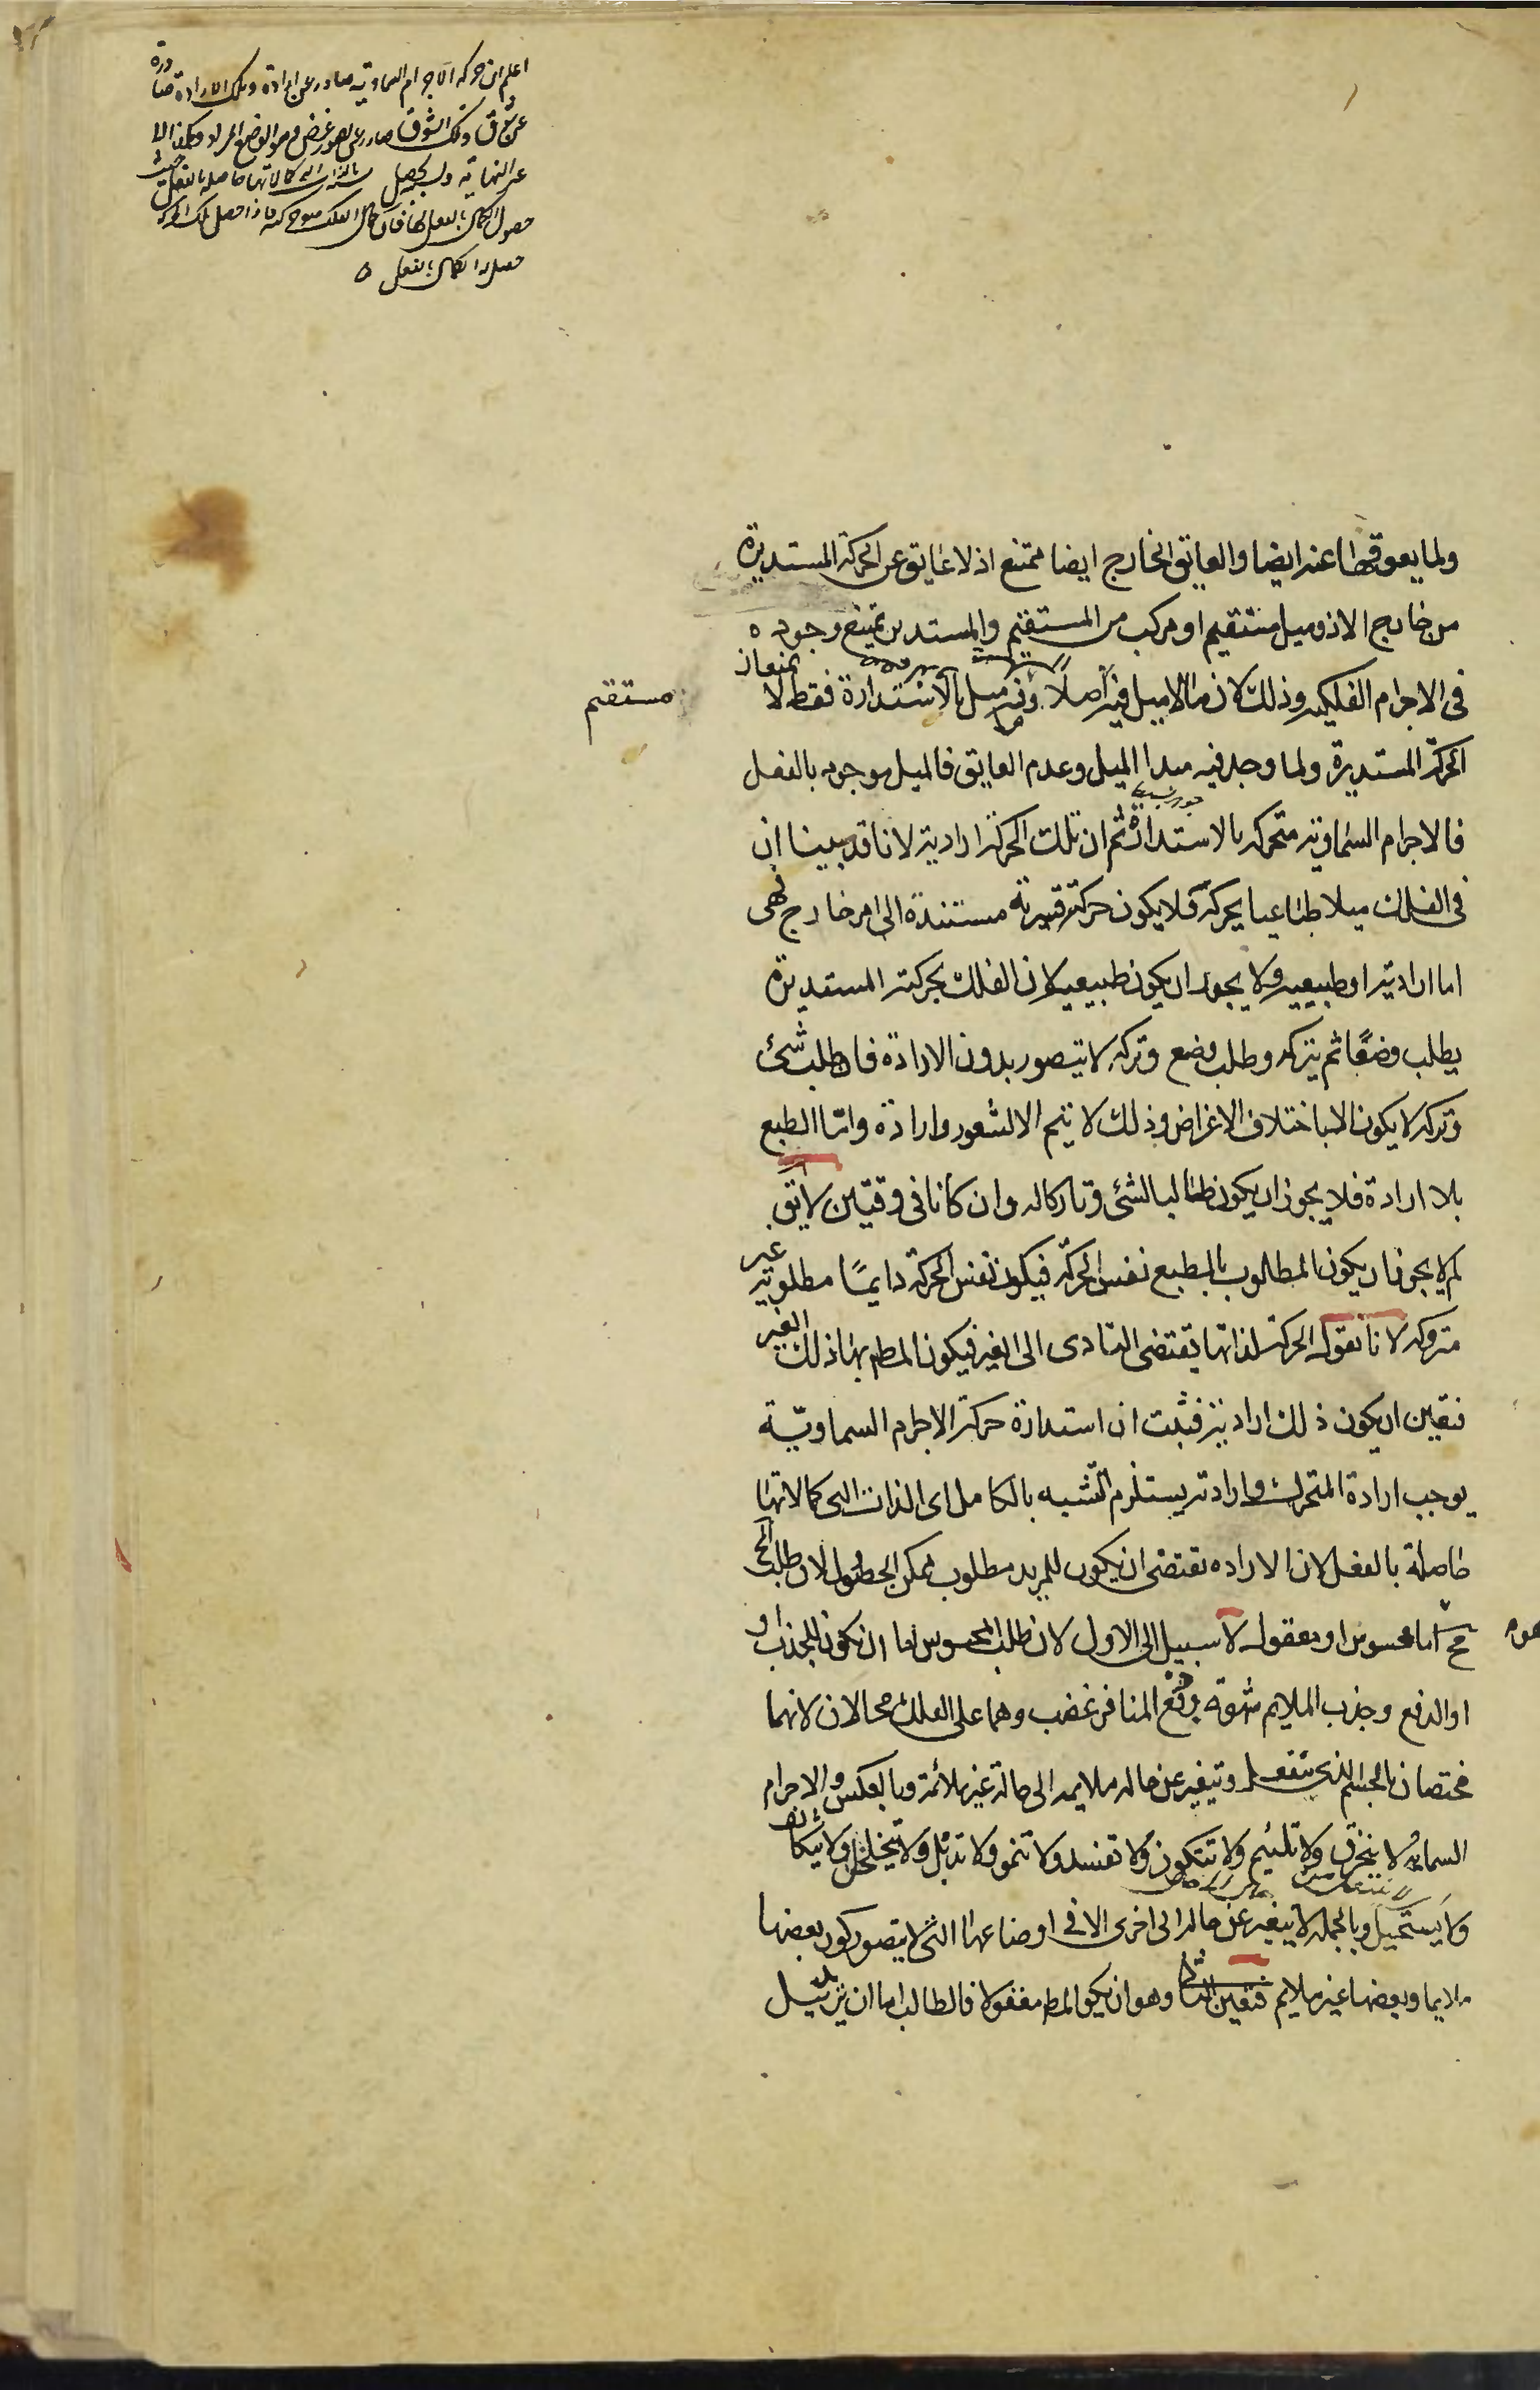 اعلم ان حركة الاجرام السماوية صادر عن ارادة وتلك الارادة صادرة
عن شوق وذلك الشوق صادر عن تصور غرض وهو الوضع المراد
حصول الكمال بالفعل فاذا حصل تلك الحركة
حصل له الكمال بالفعل ٥
ولما يعوقها عنه ايضا والعايق الخارج ايضا ممتنع اذ لا عايق عن الحركة المستديرة
من خارج الا ذو ميل مستقيم او مركب من المستقيم والمستدير يمتنع وجوده
مستقيم
فى الاجرام الفلكيه وذلك لان ما لا ميل فيه اصلا وفيه ميل بالاستدارة فقط لا يمنعان
الحركة المستديرة ولما وجد فيه مبدا الميل وعدم العايق فالميل موجود بالفعل
فالاجرام السماوية متحركه بالاستدارة ثم ان تلك الحركة ارادية لانا قد بينا ان
فى الفلك ميلا طباعيا يحركه فلا يكون حركته قسرية مستندة الى امر خارج فهى
اما ارادية او طبيعيه ولا يجوز ان يكون طبيعيه لان الفلك بحركته المستديرة
يطلب وضعًا ثم يتركه وطلب وضع وتركه لا يتصور بدون الارادة فان طلب شئ
وتركه لا يكون الا باختلاف الاغراض وذلك لا يتم الا لشعور وارادة واما الطبع
بلا ارادة فلا يجوز ان يكون طالبا لشئ وتاركا له وان كانا فى وقتين لا يق
لم لا يجوز ان يكون المطلوب بالطبع نفس الحركة فيكون نفس الحركة دايمًا مطلوبة غير
متروكه لانا نقول الحركة لذاتها تقتضى التادى الى الغير فيكون المط بها ذلك الغير
فتعين ان يكون ذلك ارادية فثبت ان استدارة حركة الاجرام السماويّة
يوجب ارادة المتحرك وارادته يستلزم التشبه بالكامل اى الذات التى كمالاتها
حاصلة بالفعل لان الاراده تقتضى ان يكون للمريد مطلوب ممكن الحصول لان طلب المح
مح اما محسوس او معقول لا سبيل الى الاول لان طلب المحسوس اما ان يكون للجذب او
او الدفع وجذب الملايم شهوة ودفع المنافر غضب وهما على الفلك محالان لانهما
مختصان بالجسم الذى ينفعل ويتغير عن حاله ملايمه الى حالة غير ملائمة وبالعكس والاجرام
السماوية لا ينخرق ولا تلتئم ولا تتكون ولا تفسد ولا تنمو ولا تذبل ولا يتخلخل ولا يتكاثف
ولا يستحيل وبالجمله لا يتغير عن حاله الى اخرى الا فى اوضاعها التى لا يتصور كون بعضها
ملايما وبعضها غير ملايم فتعين الثانى وهو ان يكون المط معقولا فالطالب اما ان يريد نيل